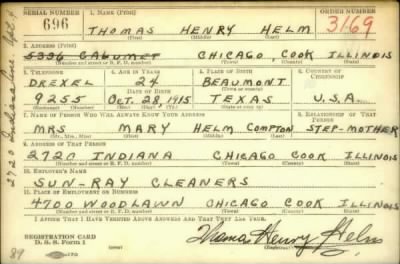 SERIAL NUMBER 1. NAME (Print) ORDER NUMBER
696 THOMAS HENRY HELM 3169
(First) (Middle) (Last)
2. ADDRESS (Print)
5336 CALUMET CHICAGO, COOK ILLINOIS
(Number and street or R. F. D. number) (Town) (County) (State)
3. TELEPHONE 4. AGE IN YEARS 5. PLACE OF BIRTH 6. COUNTRY OF CITIZENSHIP
DREXEL 24 BEAUMONT
DATE OF BIRTH (Town or county)
0255 Oct. 28, 1915 TEXAS U.S.A.
(Exchange) (Number) (Mo.) (Day) (Yr.) (State or country)
7. NAME OF PERSON WHO WILL ALWAYS KNOW YOUR ADDRESS 8. RELATIONSHIP OF THAT PERSON
MRS MARY HELM COMPTON STEP-MOTHER
(Mr., Mrs., Miss) (First) (Middle) (Last)
9. ADDRESS OF THAT PERSON
2720 INDIANA CHICAGO COOK ILLINOIS
(Number and street or R. F. D. number) (Town) (County) (State)
10. EMPLOYER'S NAME
SUN-RAY CLEANERS
11. PLACE OF EMPLOYMENT OR BUSINESS
4700 WOODLAWN CHICAGO COOK ILLINOIS
(Number and street or R. F. D. number) (Town) (County) (State)
I AFFIRM THAT I HAVE VERIFIED ABOVE ANSWERS AND THAT THEY ARE TRUE.
REGISTRATION CARD
D. S. S. Form 1
Thomas Henry Helm
(Registrant's signature)
2720 Indiana Ave